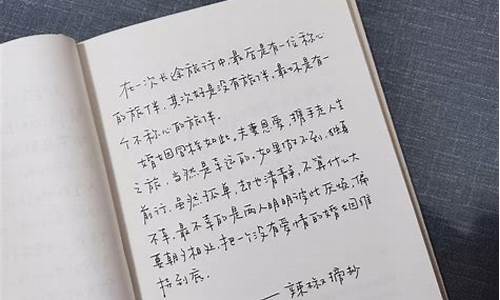 在一次长途旅行中,最好是有一位称心
的旅伴,其次好是没有旅伴,最坏是有一
个不称心的旅伴.
婚姻同样如此.夫妻恩爱,携手走人生
之旅,当然是幸运的.如果做不到,独自
前行,虽然孤单,却也清静,不算什么大
不幸,最不幸的是两人明明彼此厌烦,偏
要朝夕相处,把一个没有爱情的婚姻维
持到底.
摘抄